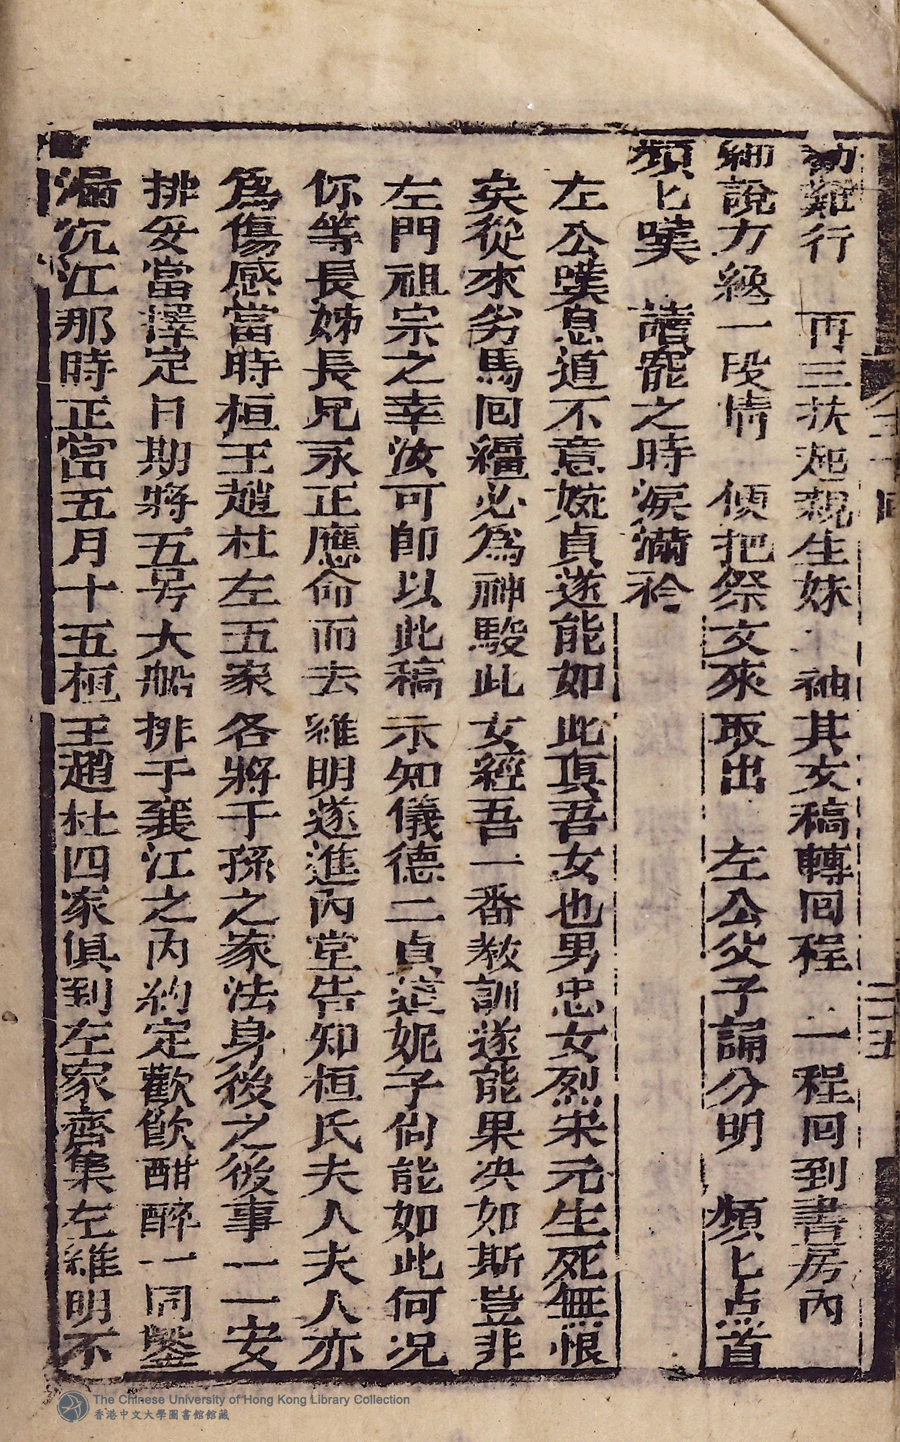 難行　再三扶起親生妹　袖其文稿轉回程　一程回到書房內
細說方纔一段情　便把祭文來取出　左公父子誦分明　頻匕点首
頻匕嘆　讀罷之時淚滿衿
左公嘆息道不意婉貞遂能如此真吾女也男忠女烈宋元生死無恨
矣從來劣馬回韁必為神駿此女經吾一番教訓遂能果决如斯豈非
左門祖宗之幸汝可師以此稿示知儀德二貞這妮子尙能如此何况
你等長姊長兄永正應命而去維明遂進內堂告知桓氏夫人夫人亦
為傷感當時桓王趙杜左五家各將于孫之家法身後之後事一一安
排妥當擇定日期將五号大船排于襄江之內約定歡飲酣醉一同鑿
漏沉江那時正當五月十五桓王趙杜四家俱到左家齊集左維明不
二十五
The Chinese University of Hong Kong Library Collection
香港中文大學圖書館館藏